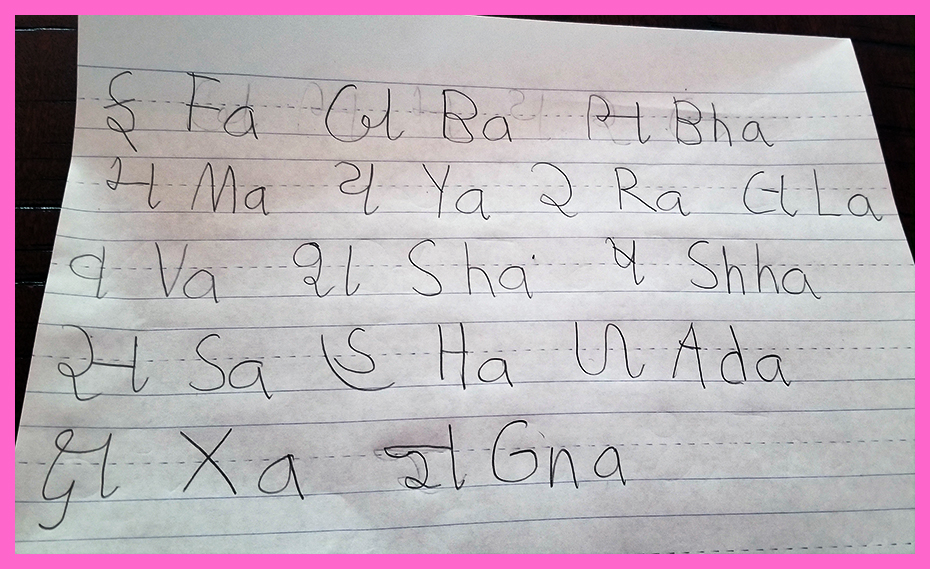 ફ Fa બ Ba ભ Bha
મ Ma ય Ya ર Ra લ La
વ Va શ Sha ષ Shha
સ Sa હ Ha ળ Ada
ક્ષ Xa જ્ઞ Gna